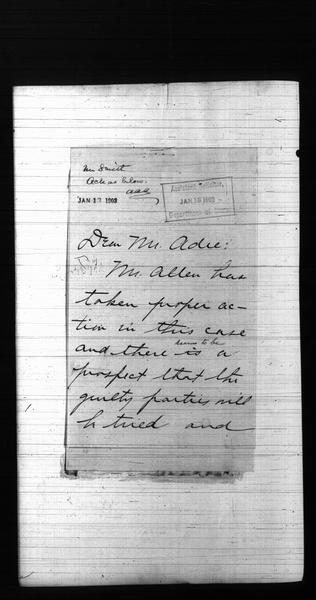 Mr Smith
Ack as below.
JAN 13 1903
Assistant
JAN 13 1903
Department of
Dear Mr. Adee:
Mr. Allen has
taken proper ac-
tion in this case
seems to be
and there is a
prospect that the
guilty parties will
be tried and